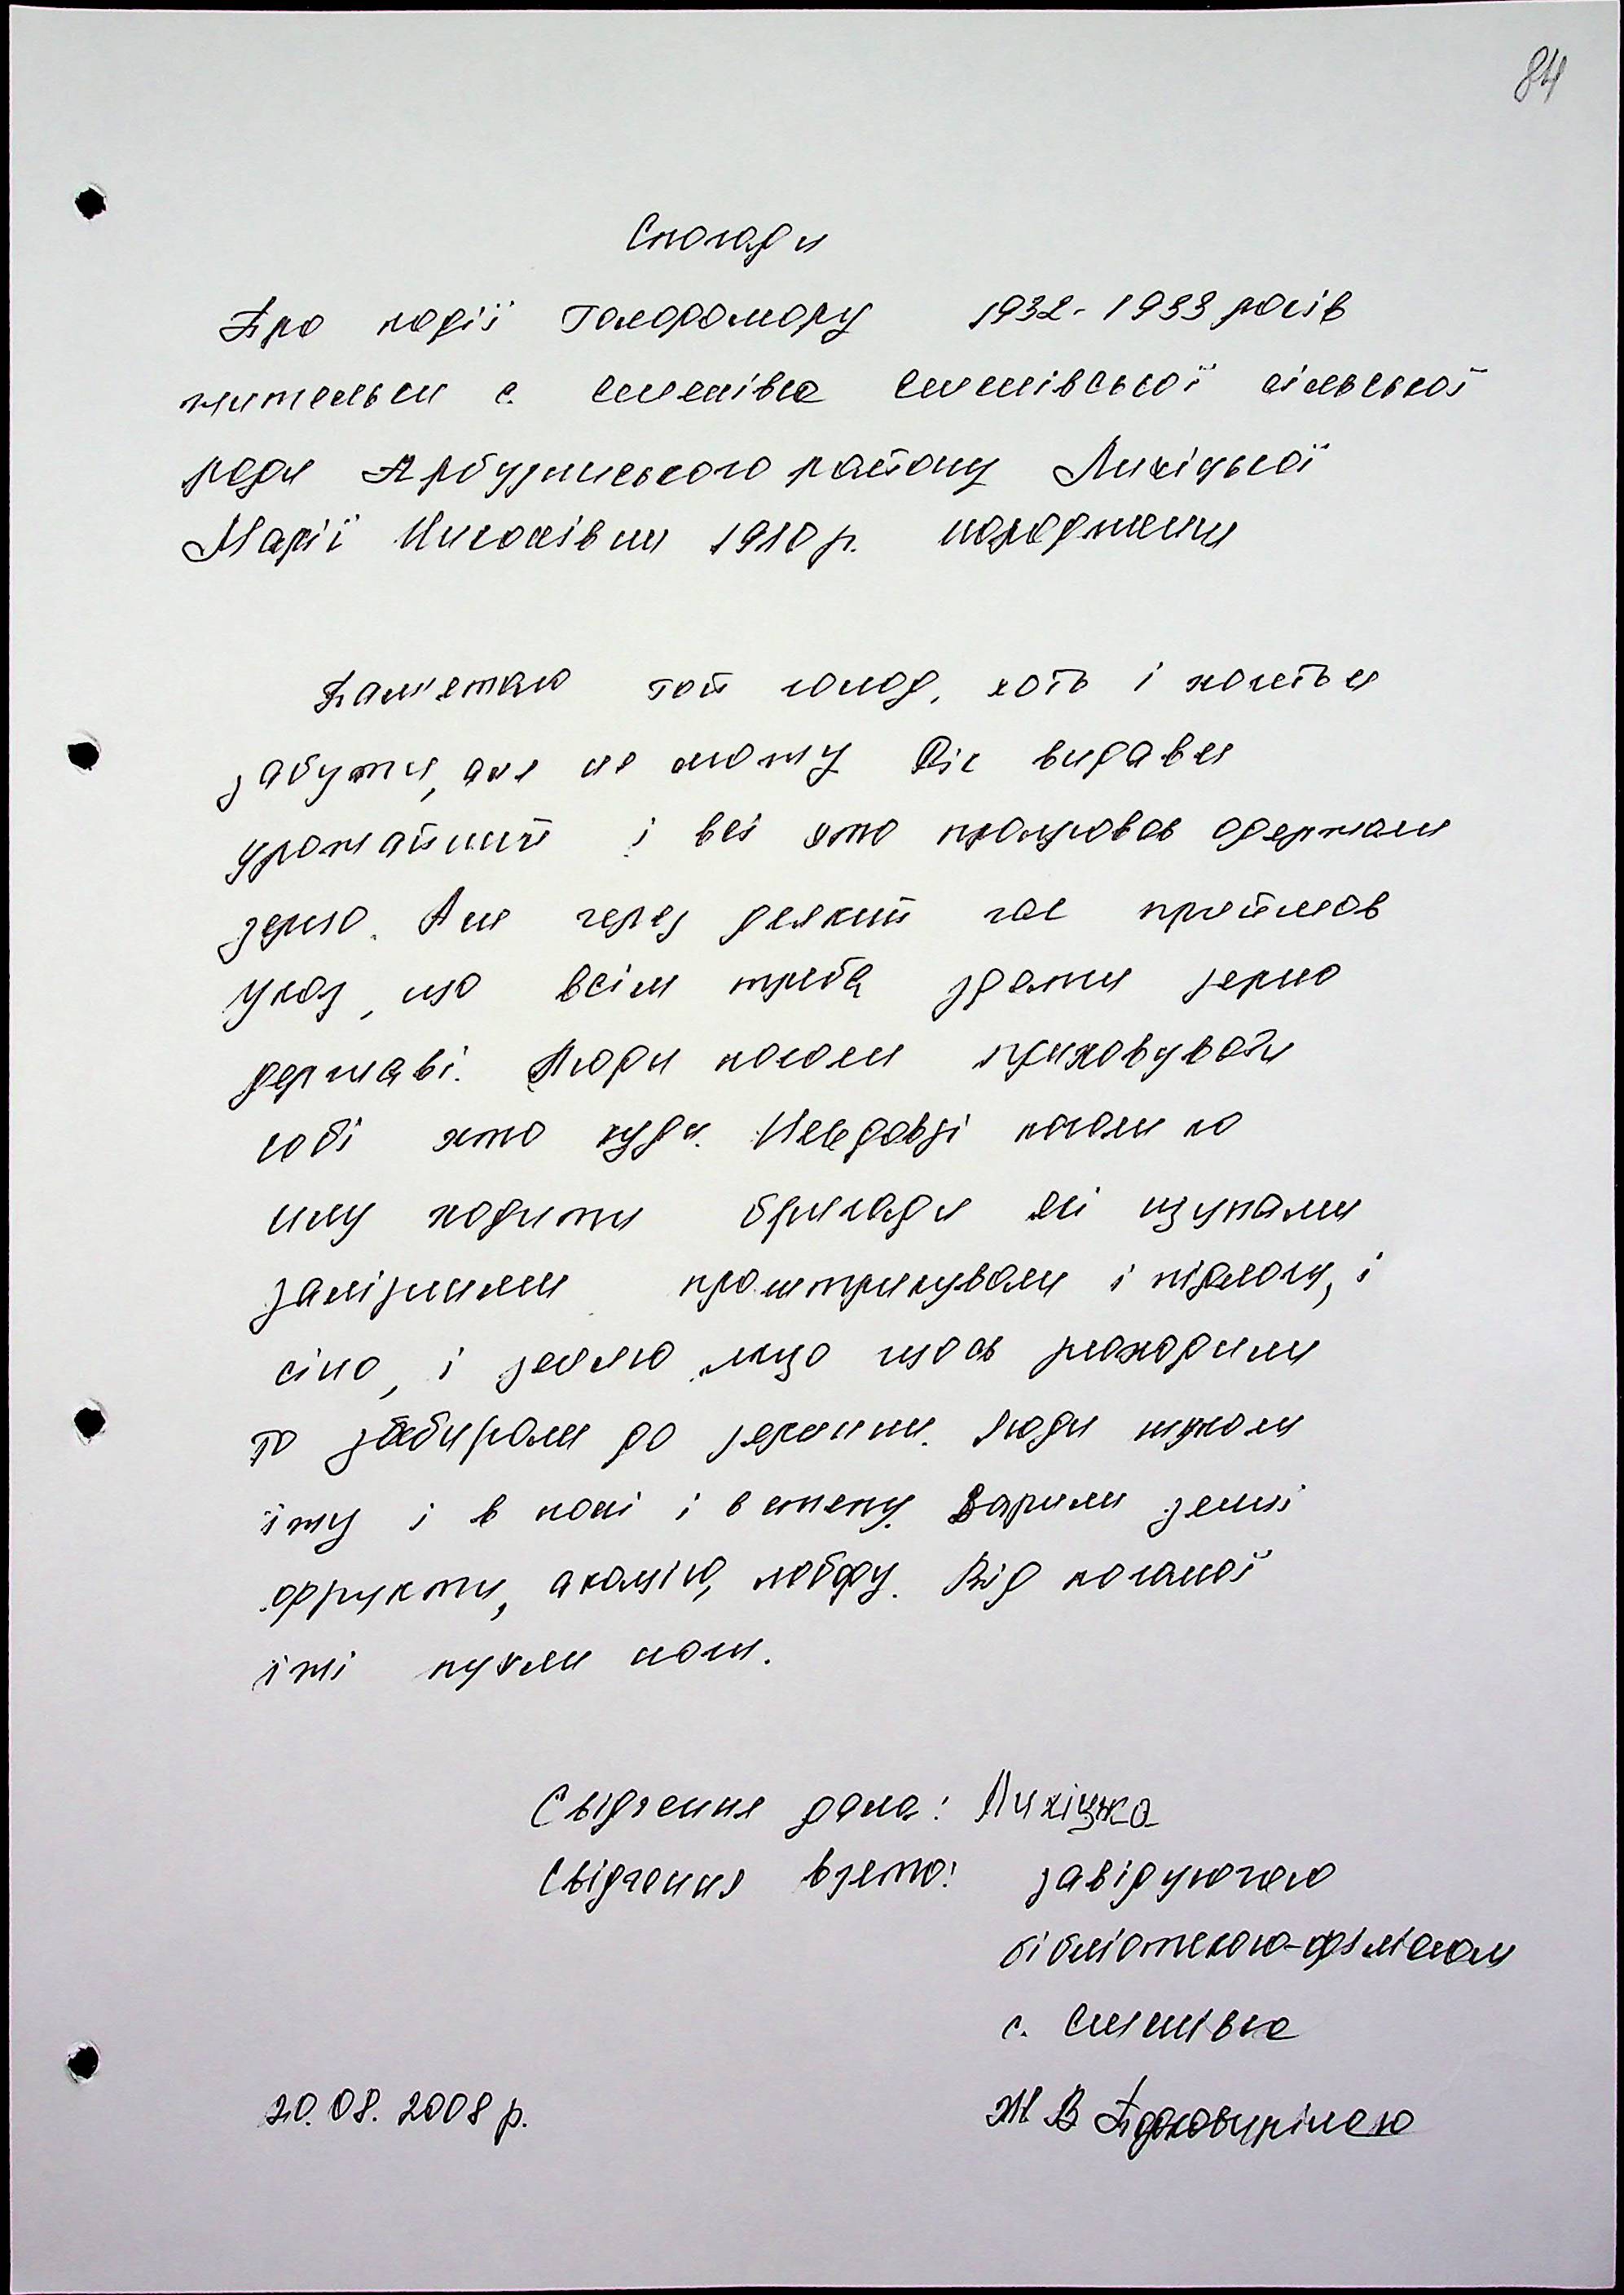 84
Спогади
Про події Голодомору 1932-1933 років
жительки с. Семенівка Семенівської сільської
ради Арбузинського району Лихіцької
Марії Миколаївни 1910 р. народження
Пам'ятаю той голод, хоть і хочеться
забути, але не можу Рік видався
урожайний і всі хто працював одержали
зерно. Але через деякий час прийшов
указ, що всім треба здати зерно
державі. Люди почали приховувати
собі хто куди. Невдовзі почали по
селу ходити бригади які щупами
залізними проштрикували і підлогу, і
сіно, і землю якщо щось знаходили
то забирали до зернини. Люди шукали
їжу і в полі і в степу. Варили зелені
фрукти, акацію, лободу. Від поганої
їжі пухли ноги.
Свідчення дала: Лихіцька
Свідчення взято: завідуючою
бібліотекою-філіалом
с. Семенівка
Ж В
20.08.2008 р.